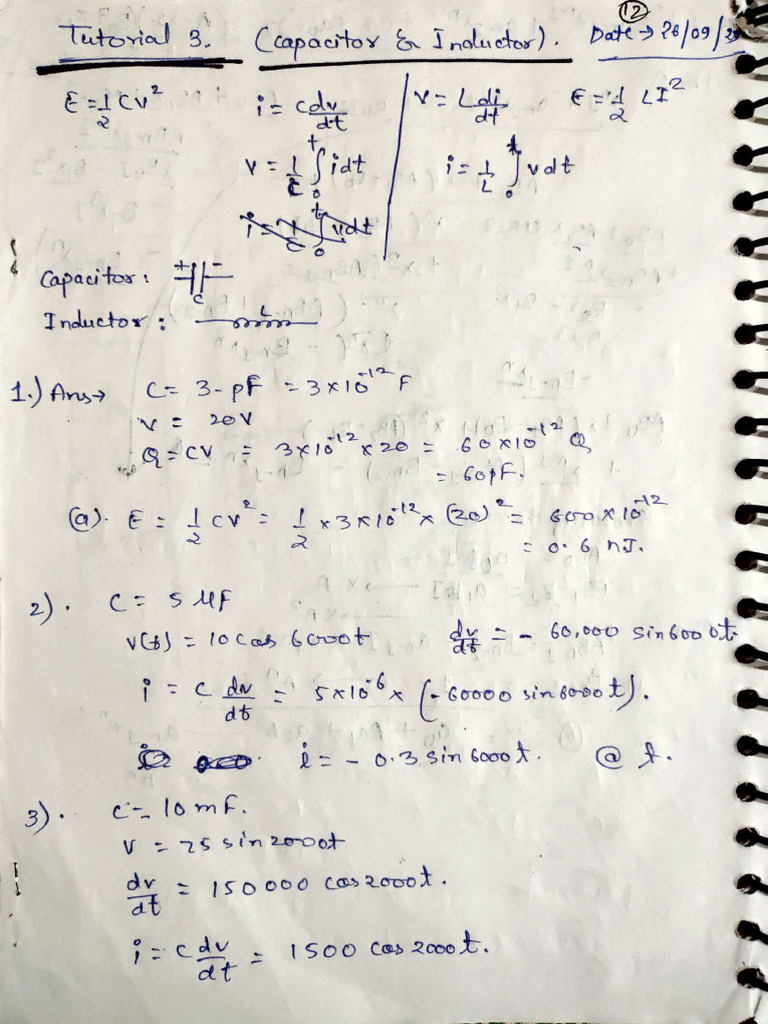 12
Tutorial 3. (capacitor & Inductor). Date → 26/09/2
E = 1/2 CV² i = C dv/dt V = L di/dt E = 1/2 LI²
V = 1/C ∫₀ᵗ idt i = 1/L ∫₀ᵗ vdt
i = 1/C ∫₀ᵗ vdt
Capacitor: + - C
Inductor: L
1.) Ans→ C = 3-pF = 3×10⁻¹² F
V = 20V
Q = CV = 3×10⁻¹² × 20 = 60×10⁻¹² Q
= 60pF.
(a). E = 1/2 CV² = 1/2 × 3×10⁻¹² × (20)² = 600×10⁻¹²
= 0.6 nJ.
2). C = 5 µF
V(t) = 10 cos 6000t dv/dt = - 60,000 sin6000t.
i = C dv/dt = 5×10⁻⁶ × (-60000 sin6000t).
i = - 0.3 sin 6000t. @ t.
3). C = 10 mF.
V = 75 sin2000t
dv/dt = 150000 cos2000t.
i = C dv/dt = 1500 cos 2000t.